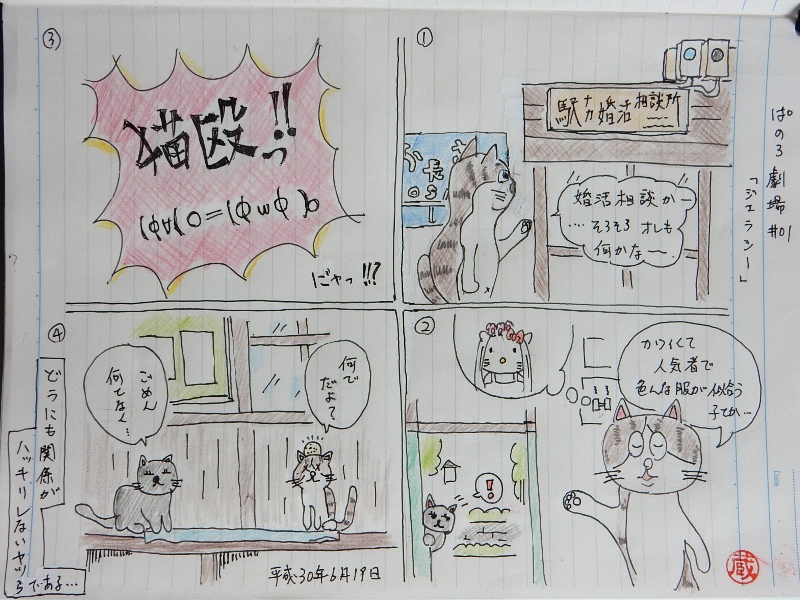 ぱのろ劇場 #01
「ジェラシー」
①
駅ナカ婚活相談所
長
婚活相談かー
‥‥そろそろオレも
何かな〜
②
カワイくて
人気者で
色んな服が似合う
子でか…
!
③
猫殴っ!!
(φ∀(O=(ΦωΦ)o
にゃっ!!?
④
何で
だよ?
ごめん
何となく…
どうにも関係が
ハッキリしないヤツら
である…
平成30年6月19日
蔵